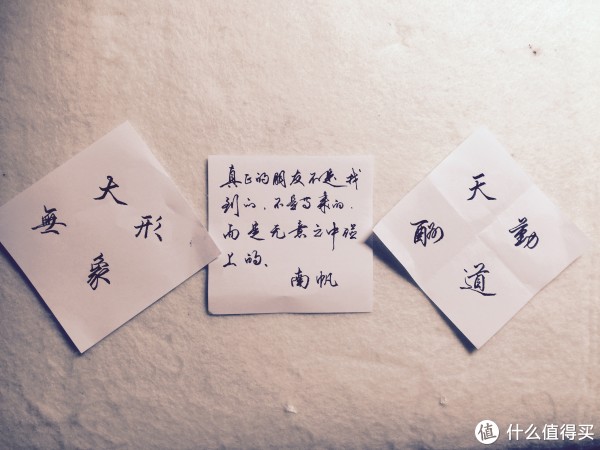 大
無 形
象
真正的朋友不是找
到的,不是寻来的,
而是无意之中碰
上的、
南帆
天
酬 勤
道
值 什么值得买